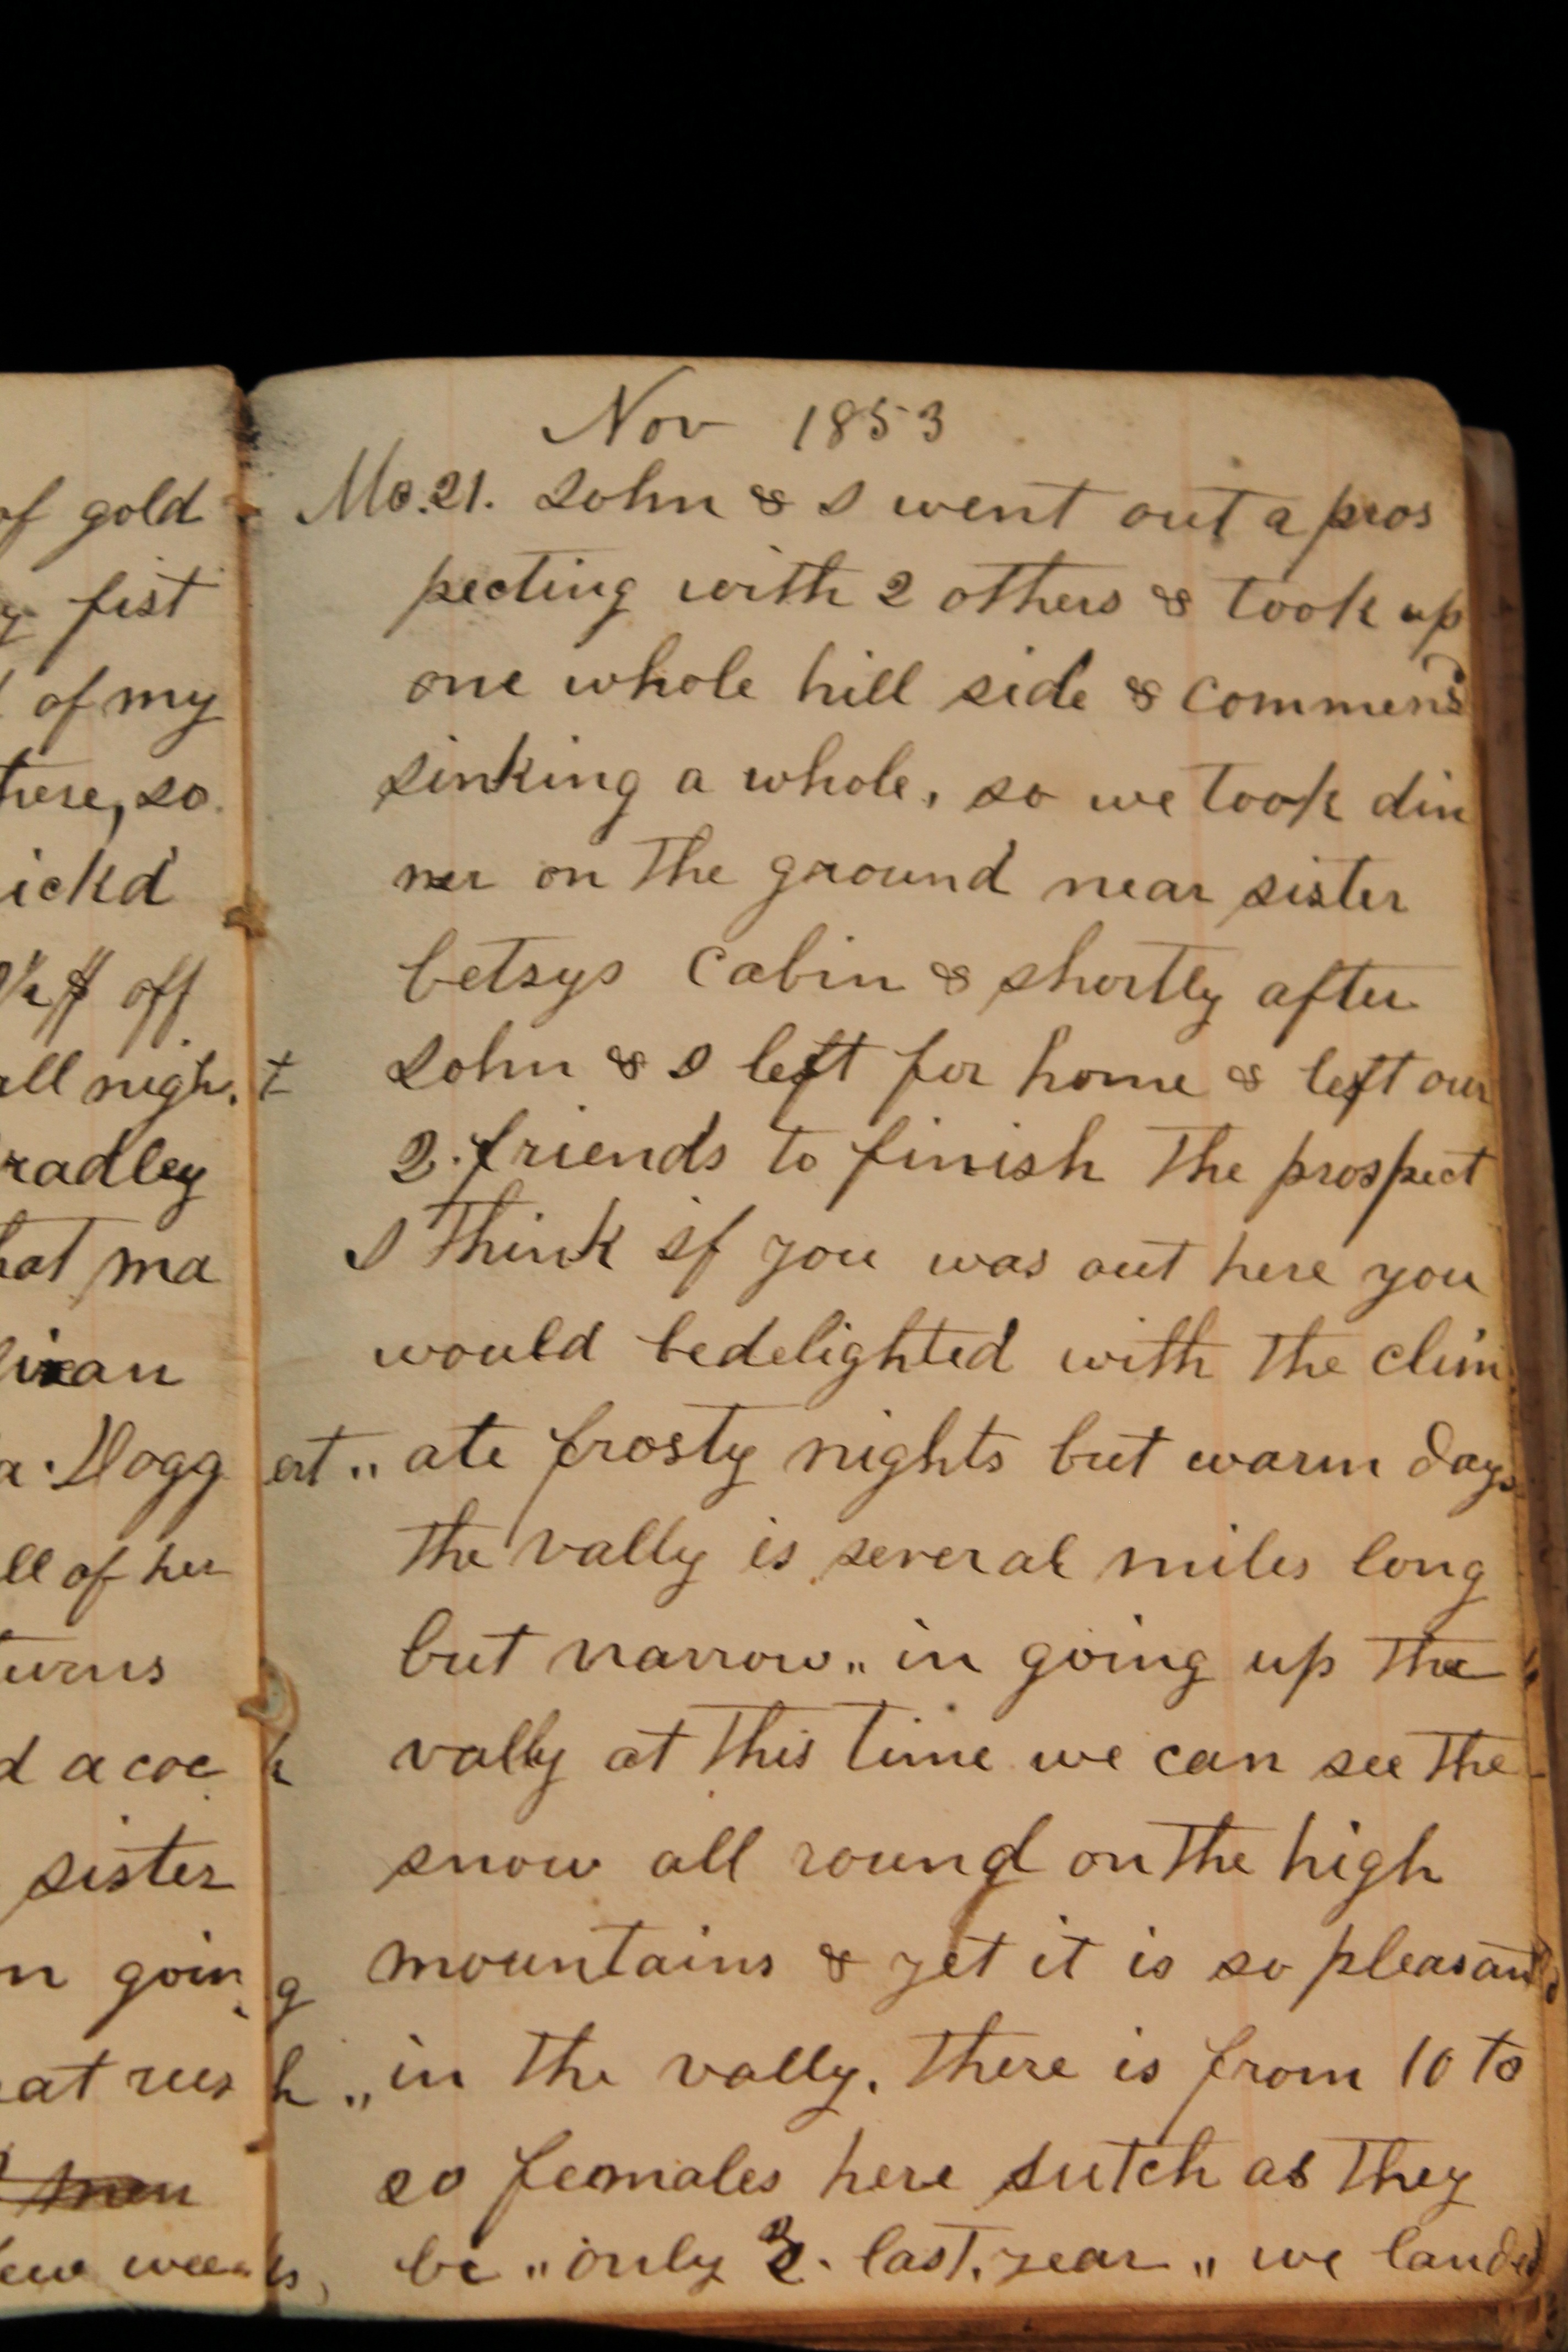 of gold
fist
of my
here, so
ickd
off
all nigh.t
radley
hat ma
a. Dogg ert „
ll of her
turns
d a coc k
sister
n goin g
eat rus h „
few weeks,
Nov 1853
Mo.21. John & I went out a pros
pecting with 2 others & took up
one whole hill side & commens'd
sinking a whole, so we took din
ner on the ground near sister
betsys Cabin & shortly after
John & I left for home & left our
2. friends to finish the prospect
I think if you was out here you
would bedelighted with the clim
ate frosty nights but warm days
the vally is several miles long
but narrow „ in going up the
vally at this time we can see the
snow all round on the high
mountains & yet it is so pleasant
in the vally. there is from 10 to
20 females here sutch as they
be „ only 2. last year „ we landed